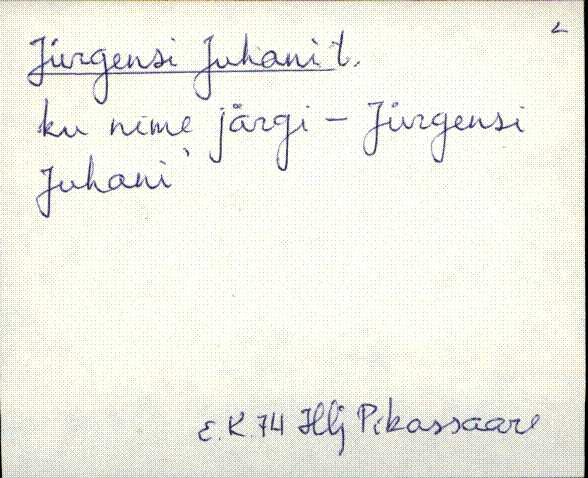 Jürgensi Juhani t.
ku nime järgi – Jürgensi
Juhani
E.K. 74 Hlj Pikassaare